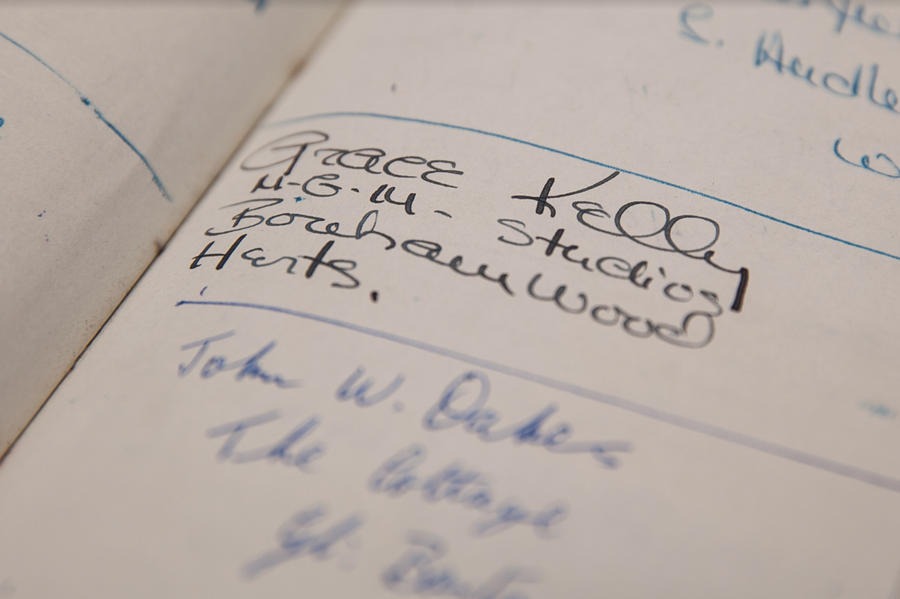 S. Hudle
Grace Kelly
M-G-M- Studios
Boreham Wood
Herts.
John W. Oakes
The Cottage
Gt.